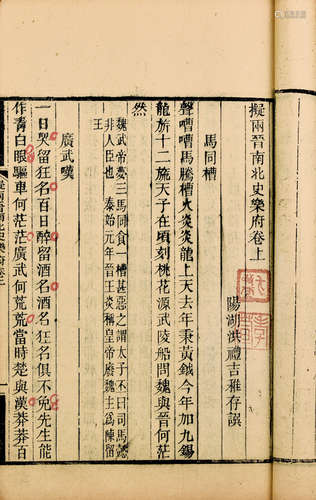 擬兩晉南北史樂府卷上
陽湖洪禮吉稚存譔
馬同槽
聲嘈嘈馬騰槽火炎炎龍上天去年秉黃鉞今年加九錫
龍旂十二旒天子在頃刻桃花源武陵船問魏與晉何茫
然
魏武帝夢三馬同食一槽甚惡之謂太子丕曰司馬懿
非人臣也 泰始元年晉王炎稱皇帝廢魏主爲陳留
王
廣武嘆
一日哭留狂名百日醉留酒名酒名狂名俱不免先生能
作青白眼驅車何茫茫廣武何荒荒當時楚與漢莽莽百